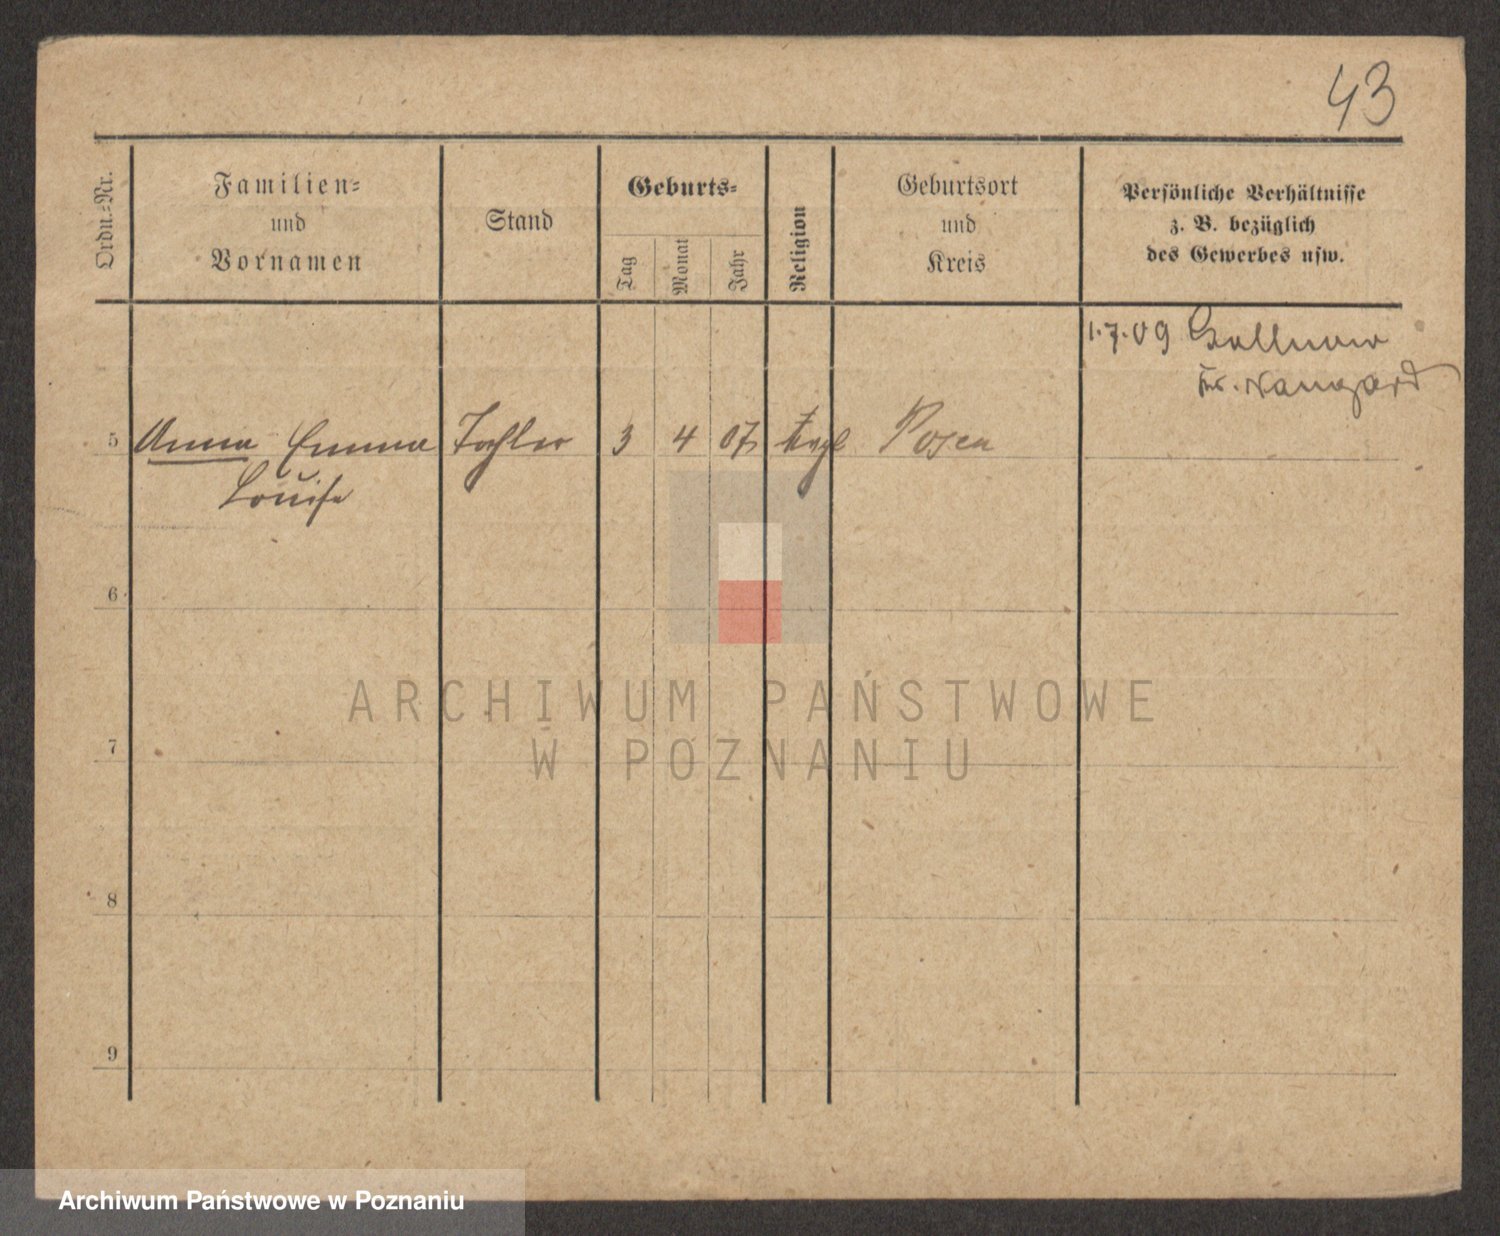 43
Ordn.-Nr.
Familien-
und
Vornamen
Stand
Geburts-
Tag
Monat
Jahr
Religion
Geburtsort
und
Kreis
Persönliche Verhältnisse
z. B. bezüglich
des Gewerbes usw.
1.7.09 Gollnow
Kr. Naugard
5 Anna Emma Tochter 3 4 07 evgl Posen
Louise
6
7
8
9
ARCHIWUM PAŃSTWOWE
W POZNANIU
Archiwum Państwowe w Poznaniu